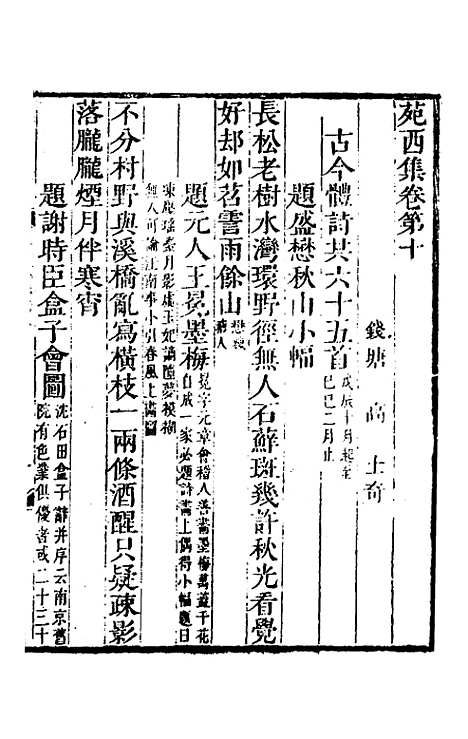 苑西集卷第十
錢塘 高士奇
古今體詩共六十五首戊辰十月起至
己巳二月止
題盛懋秋山小幅
長松老樹水灣環野徑無人石蘚斑幾許秋光看覺
好却如苕霅雨餘山懋魏
塘人
題元人王冕墨梅冕字元章會稽人善畫墨梅萬蕋千花
自成一家必題詩畫上偶得小幅題曰
凍縞瑤臺月影虛玉妃謫墮夢模糊
無人可論江南事小引春風上畫圖
不分村野與溪橋亂寫橫枝一兩條酒醒只疑疎影
落朧朧煙月伴寒宵
題謝時臣盒子會圖沈石田盒子辭并序云南京舊
院有色藝俱優者或二十三十